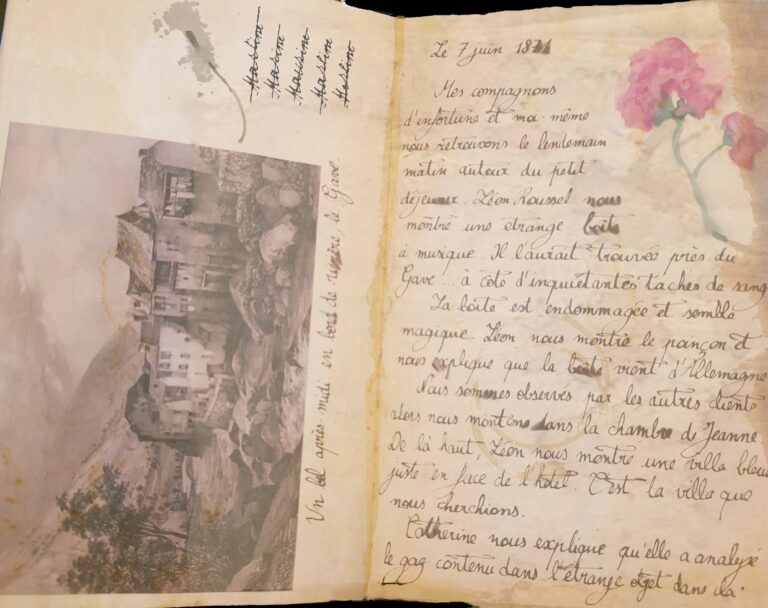 Un bel après midi en bord de rivière, le Gave.
Le 7 juin
Mes compagnons
d'infortune et moi-même
nous retrouvons le lendemain
matin autour du petit
déjeuner. Léon Roussel nous
montre une etrange boîte
à musique. Il l'aurait trouvée près du
Gave... à côte d'inquiétantes taches de sang
La boîte est endommagée et semble
magique. Léon nous montre le poinçon et
nous explique que la boîte vient d'Allemagne
Nous sommes observés par les autres clients
alors nous montons dans la chambre de Jeanne
De là haut, Léon nous montre une villa bleue
juste en face de l'hotel. C'est la villa que
nous cherchions.
Catherine nous explique qu'elle a analysé
le gaz contenu dans l'étrange objet dans la